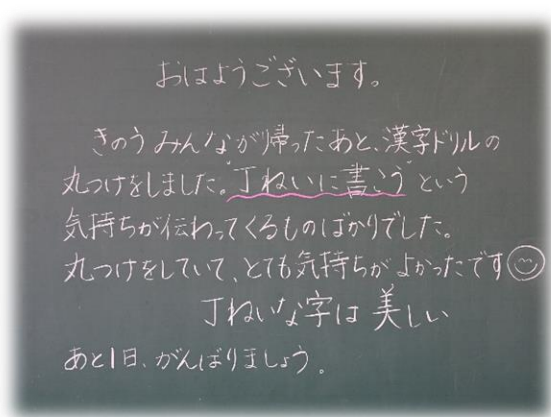 おはようございます。
きのうみんなが帰ったあと、漢字ドリルの
丸つけをしました。"丁ねいに書こう"という
気持ちが伝わってくるものばかりでした。
丸つけをしていて、とても気持ちがよかったです
丁ねいな字は美しい
あと1日、がんばりましょう。